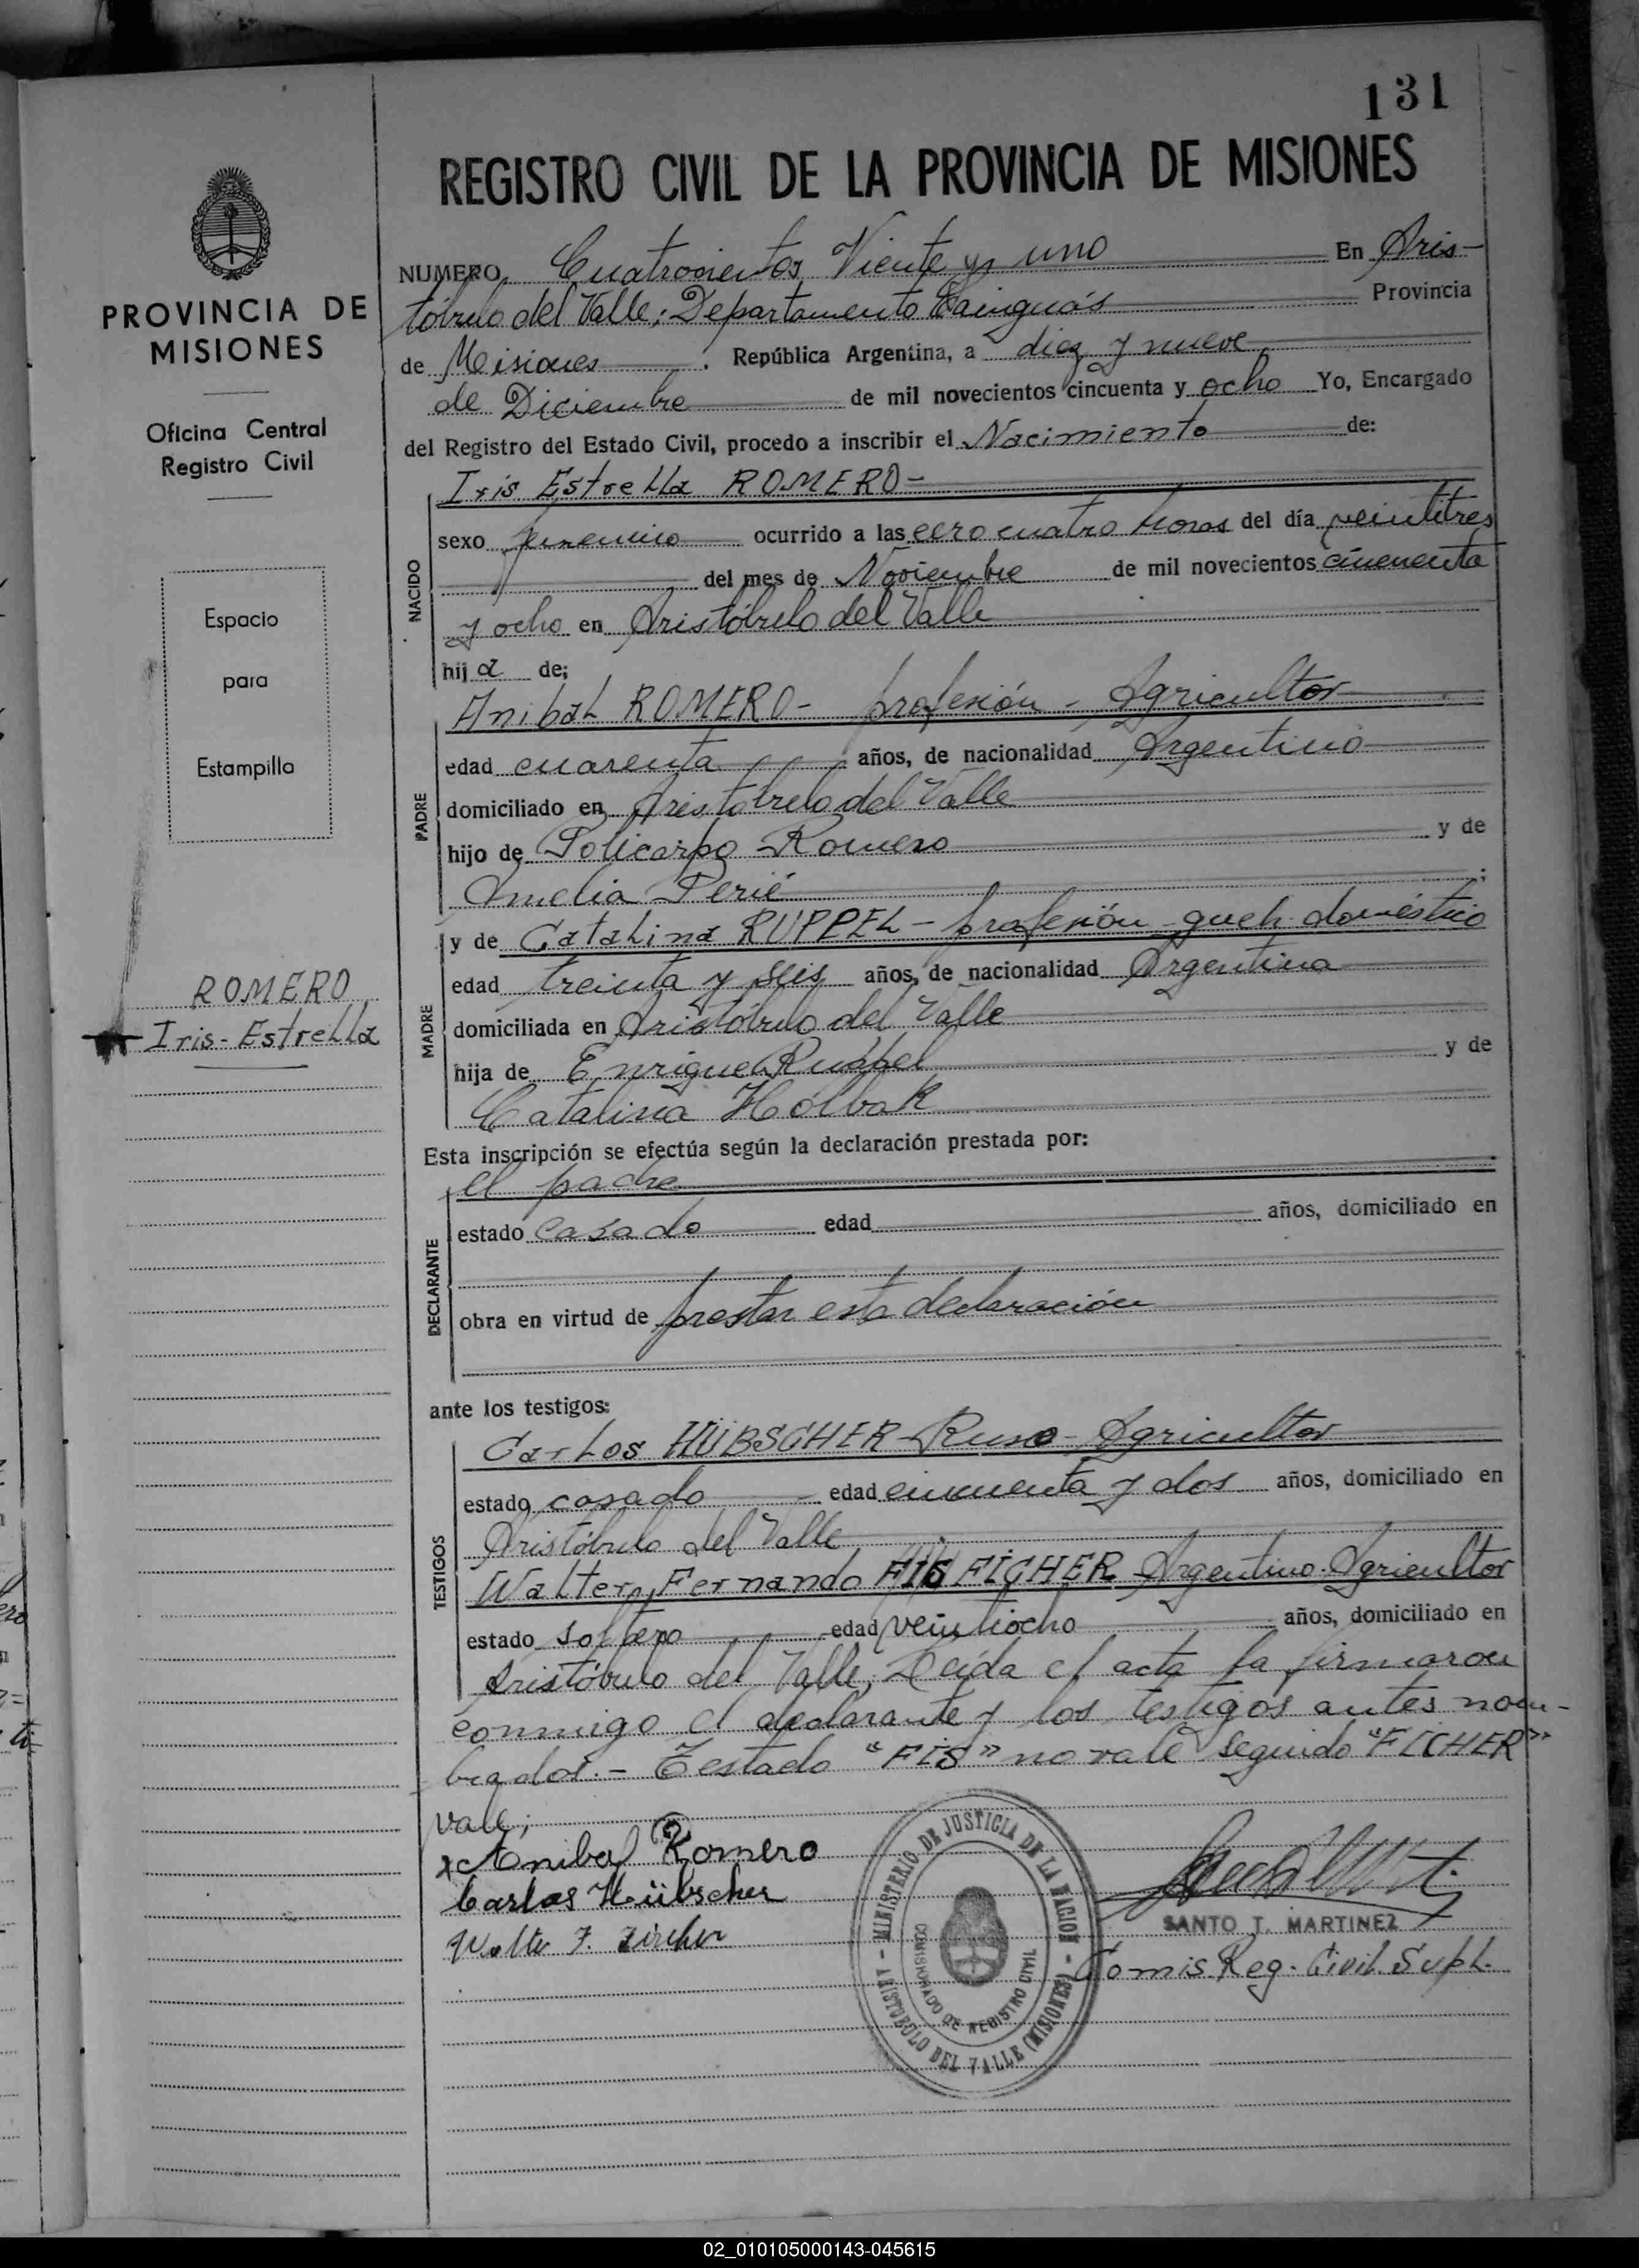 131
REGISTRO CIVIL DE LA PROVINCIA DE MISIONES
PROVINCIA DE
MISIONES
Oficina Central
Registro Civil
Espacio
para
Estampilla
ROMERO
Iris-Estrella
NUMERO Cuatrocientos Viente y uno En Aris-
tóbulo del Valle; Departamento Cainguás Provincia
de Misiones . República Argentina, a diez y nueve
de Diciembre de mil novecientos cincuenta y ocho Yo, Encargado
del Registro del Estado Civil, procedo a inscribir el Nacimiento de:
NACIDO
Iris Estrella ROMERO-
sexo femenino ocurrido a las cero cuatro horas del día veintitres
del mes de Noviembre de mil novecientos cincuenta
y ocho en Aristóbulo del Valle
hija de;
PADRE
Anibal ROMERO- profesión - Agricultor
edad cuarenta años, de nacionalidad Argentino
domiciliado en Aristobulo del Valle
hijo de Policarpo Romero y de
Amelia Perié ;
MADRE
y de Catalina RUPPEL - profesión queh. doméstico
edad treinta y seis años, de nacionalidad Argentina
domiciliada en Aristóbulo del Valle
hija de Enrique Ruppel y de
Catalina Hólbak
Esta inscripción se efectúa según la declaración prestada por:
DECLARANTE
el padre
estado casado edad años, domiciliado en
obra en virtud de prestar esta declaración
ante los testigos:
TESTIGOS
Carlos HÜBSCHER-Ruso-Agricultor
estado casado edad cincuenta y dos años, domiciliado en
Aristóbulo del Valle
Walter Fernando FIS FICHER Argentino-Agricultor
estado soltero edad veintiocho años, domiciliado en
Aristóbulo del Valle, Leida el acta la firmaron
conmigo el declarante y los testigos antes nom-
brados.- Testado "FIS" no vale seguido "FICHER"
vale;
x Anibal Romero
Carlos Hübscher
Walter F. Fircher
MINISTERIO DE JUSTICIA DE LA NACION - ARISTOBULO DEL VALLE (MISIONES) -
COMISIONADO DE REGISTRO CIVIL
SANTO T. MARTINEZ
Comis. Reg. Civil. Supl.
02_010105000143-045615